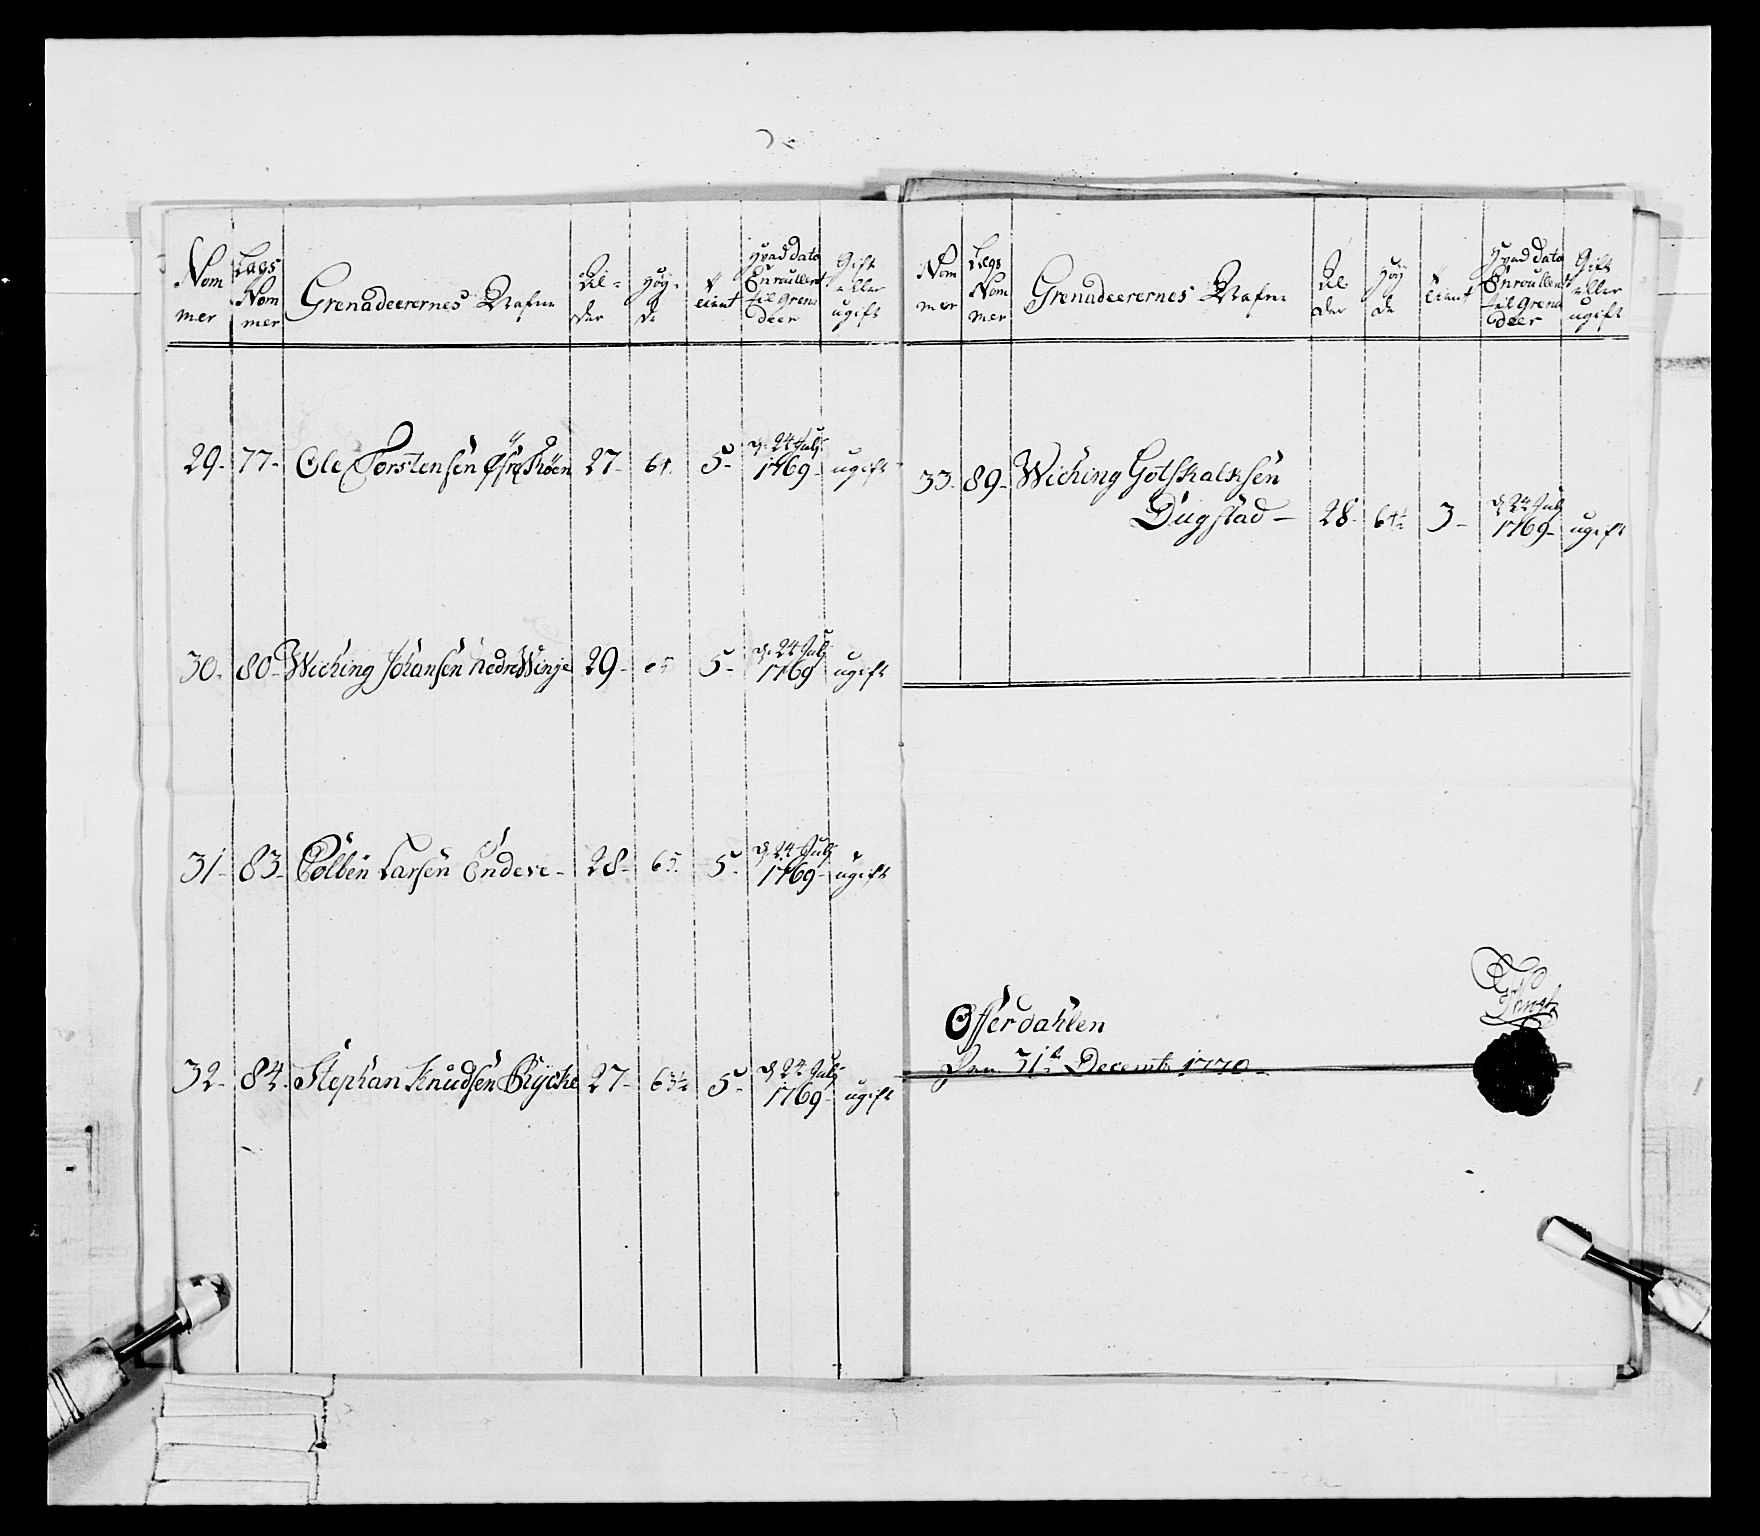 Nom mer | Lægs Nom mer | Grenadeerernes Nafne | Al- der | Høy- de | tient | Hvad Dato Enroullert til Grena deer | Gift eller ugift
29- | 77- | Ole Torstensen Øfre Røen | 27- | 64. | 5- | d. 24 July 1769- | ugift
30. | 80- | Wiching Johansen nedre Winje | 29- | 65 | 5- | d. 24 July 1769 | ugift
31- | 83- | Colben Larsen Endeve- | 28- | 65. | 5- | d. 24 July 1769- | ugift
32- | 84- | Stephan Knudsen Rycke | 27- | 63½ | 5- | d 24 July 1769- | ugift
Nom mer | Lægs Nom mer | Grenadeerernes Nafne | Al der | Høy de | tient | Hvad Dato Enroullert til Grena deer | Gift eller ugift
33- | 89- | Wiching Gotskalksen
Dugstad- | 28- | 64½ | 3- | d 24 July 1769- | ugift
Offerdahlen
Den 31te Decemb 1770-